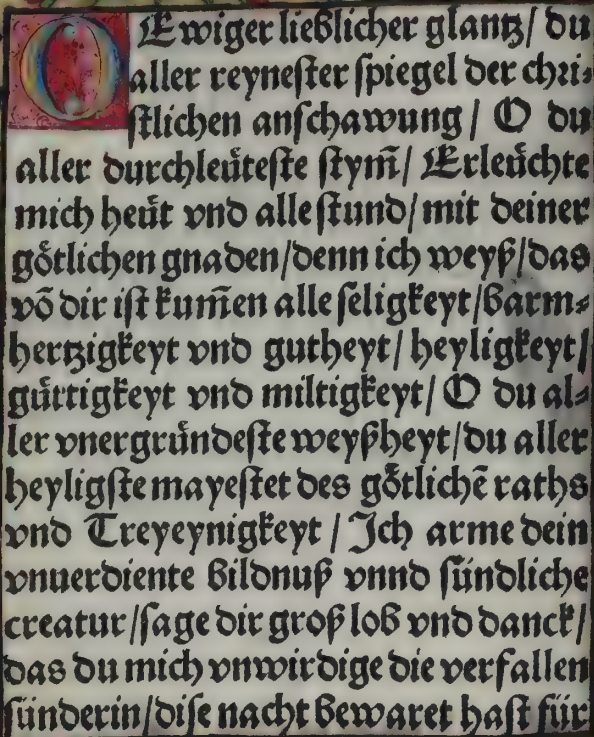 O Ewiger lieblicher glantz/ du
aller reynester spiegel der chri⸗
stlichen anschawung/ O du
aller durchleůteste stym̃/ Erleůchte
mich heůt vnd alle stund/ mit deiner
go̊tlichen gnaden/denn ich weyß/das
võ dir ist kum̃en alle seligkeyt/barm⸗
hertzigkeyt vnd gutheyt/ heyligkeyt/
gůttigkeyt vnd miltigkeyt/ O du al⸗
ler vnergrůndeste weyßheyt/du aller
heyligste mayestet des go̊tlichẽ raths
vnd Treyeynigkeyt / Ich arme dein
vnuerdiente bildnuß vnnd sündliche
creatur/sage dir groß lob vnd danck/
das du mich vnwirdige die verfallen
sünderin/dise nacht bewaret hast für